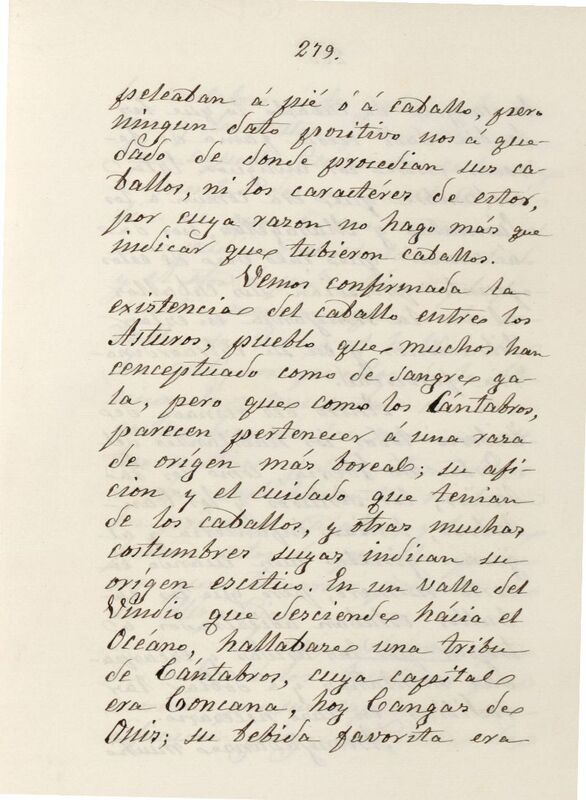 279.
peleaban á pié ó á caballo, pero
ningun dato positivo nos á que-
dado de donde procedian sus ca-
ballos, ni los caractéres de estos,
por cuya razon no hago más que
indicar que tubieron caballos.
Vemos confirmada la
existencia del caballo entre los
Asturos, pueblo que muchos han
conceptuado como de sangre ga-
la, pero que como los Cántabros,
parecen pertenecer á una raza
de orígen más boreal; su afi-
cion y el cuidado que tenian
de los caballos, y otras muchas
costumbres suyas indican su
orígen escitico. En un valle del
Vindio que desciende hácia el
Océano, hallabase una tribu
de Cántabros, cuya capital
era Concana, hoy Cangas de
Onis; su bebida favorita era